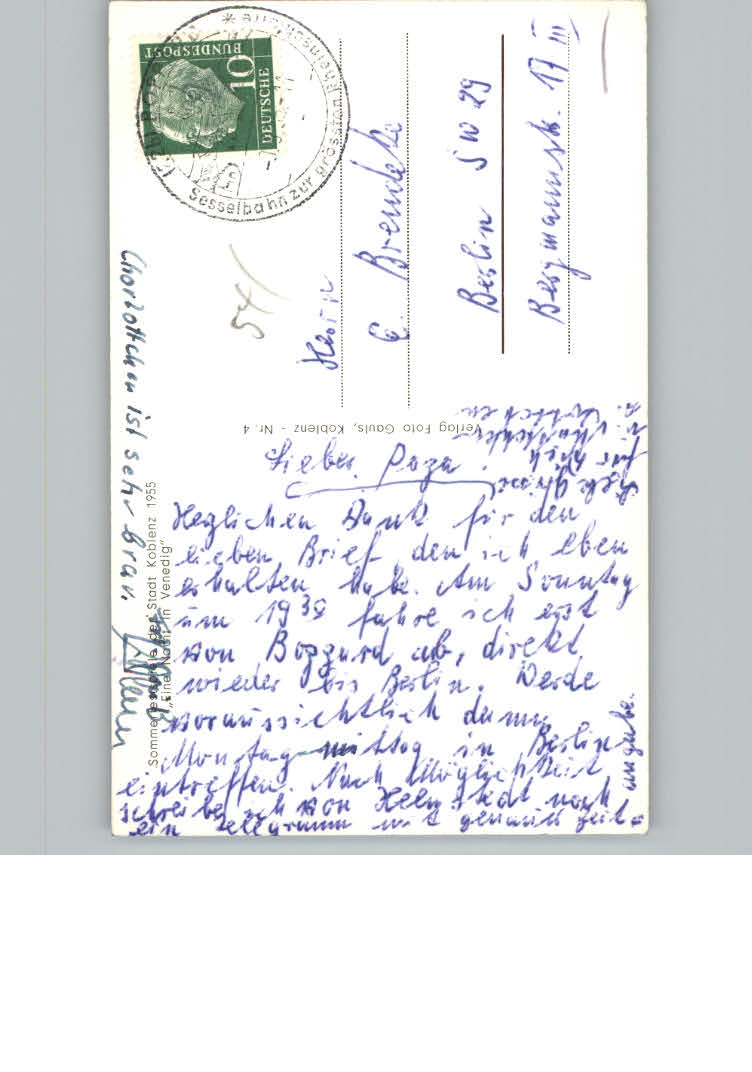 Lieber Papa!
Herzlichen Dank für den
lieben Brief den ich eben
erhalten habe. Am Sonntag
um 19³⁹ fahre ich erst
von Boppard ab, direkt
wieder bis Berlin. Werde
voraussichtlich dann
Montag mittag in Berlin
eintreffen. Nach Möglichkeit
schreibe ich von Helmstedt noch
ein Telegramm mit genauer Zeit=
angabe.
Charlottchen ist sehr brav
Sommerfestspiele der Stadt Koblenz 1955
„Eine Nacht in Venedig"
Verlag Foto Gauls, Koblenz - Nr. 4
Herrn
E. Brendeke
Berlin SW 29
Bergmannstr. 17 III
54/
DEUTSCHE
BUNDESPOST
10
Sesselbahn zur grössten Rheinschleife *